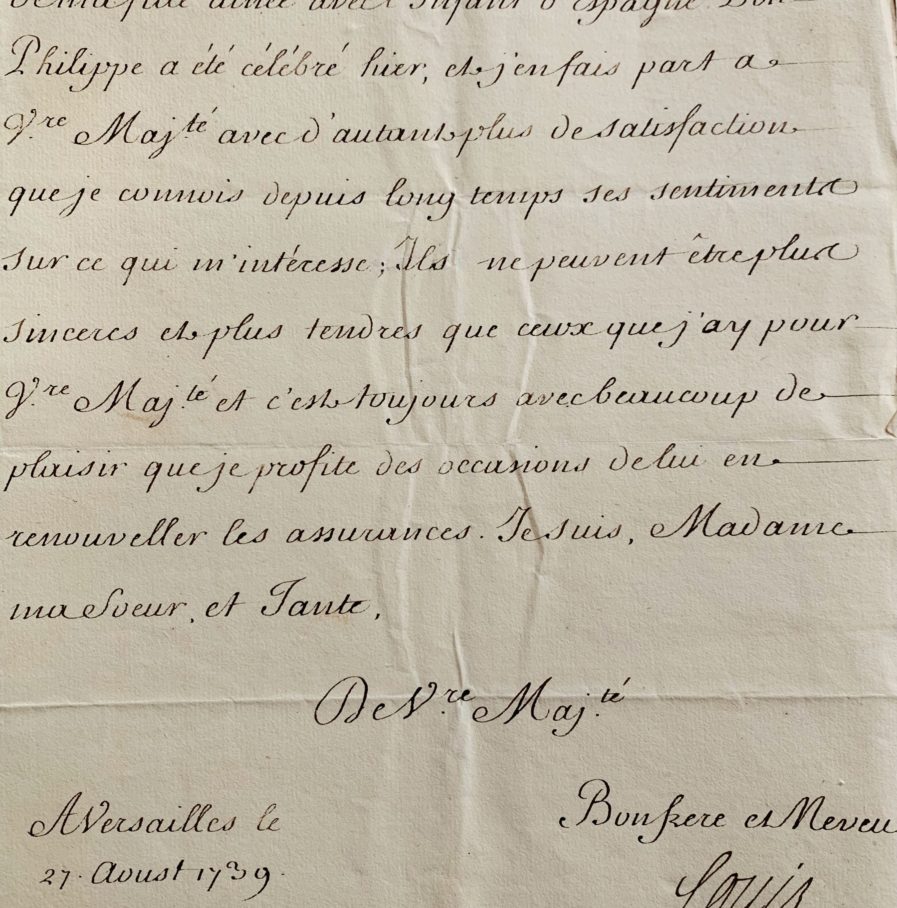 de ma fille ainée avec l'Infant d'Espagne Don
Philippe a été célébré hier, et j'en fais part a
V.re Maj.té avec d'autant plus de satisfaction
que je connois depuis long temps ses sentiments
sur ce qui m'intéresse; Ils ne peuvent être plus
sinceres et plus tendres que ceux que j'ay pour
V.re Maj.té et c'est toujours avec beaucoup de
plaisir que je profite des occasions de lui en
renouveller les assurances. Je suis, Madame
ma Soeur, et Tante,
De V.re Maj.té
A Versailles le
27. Aoust 1739.
Bon frere et Neveu
Louis